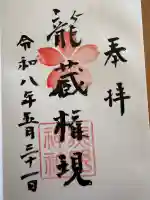 奉拝
龍蔵権現
令和八年五月三十一日